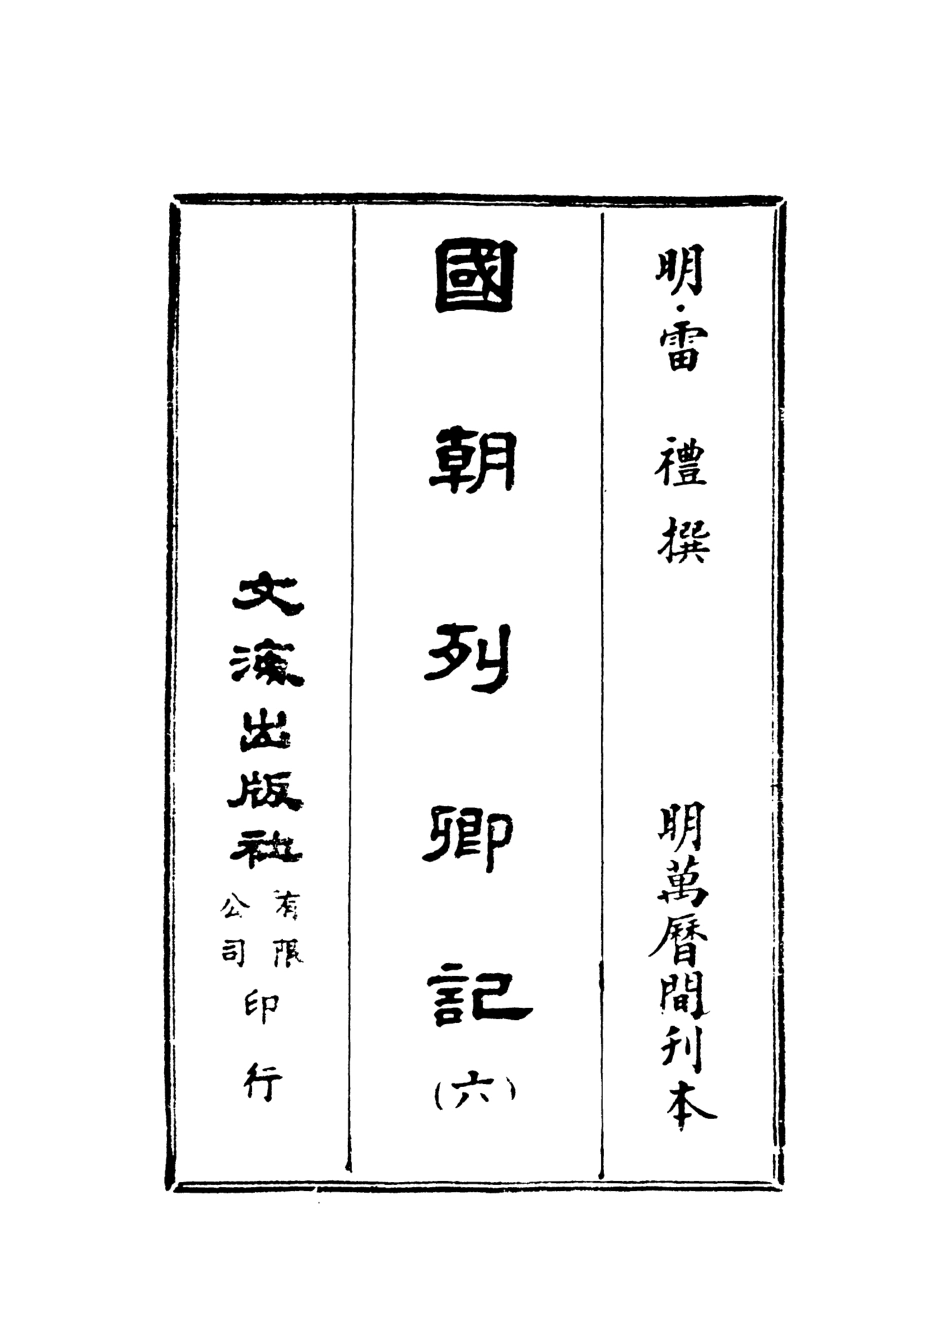 明・雷禮撰
明萬曆間刊本
國朝列卿記
(六)
文海出版社
有限
公司
印行